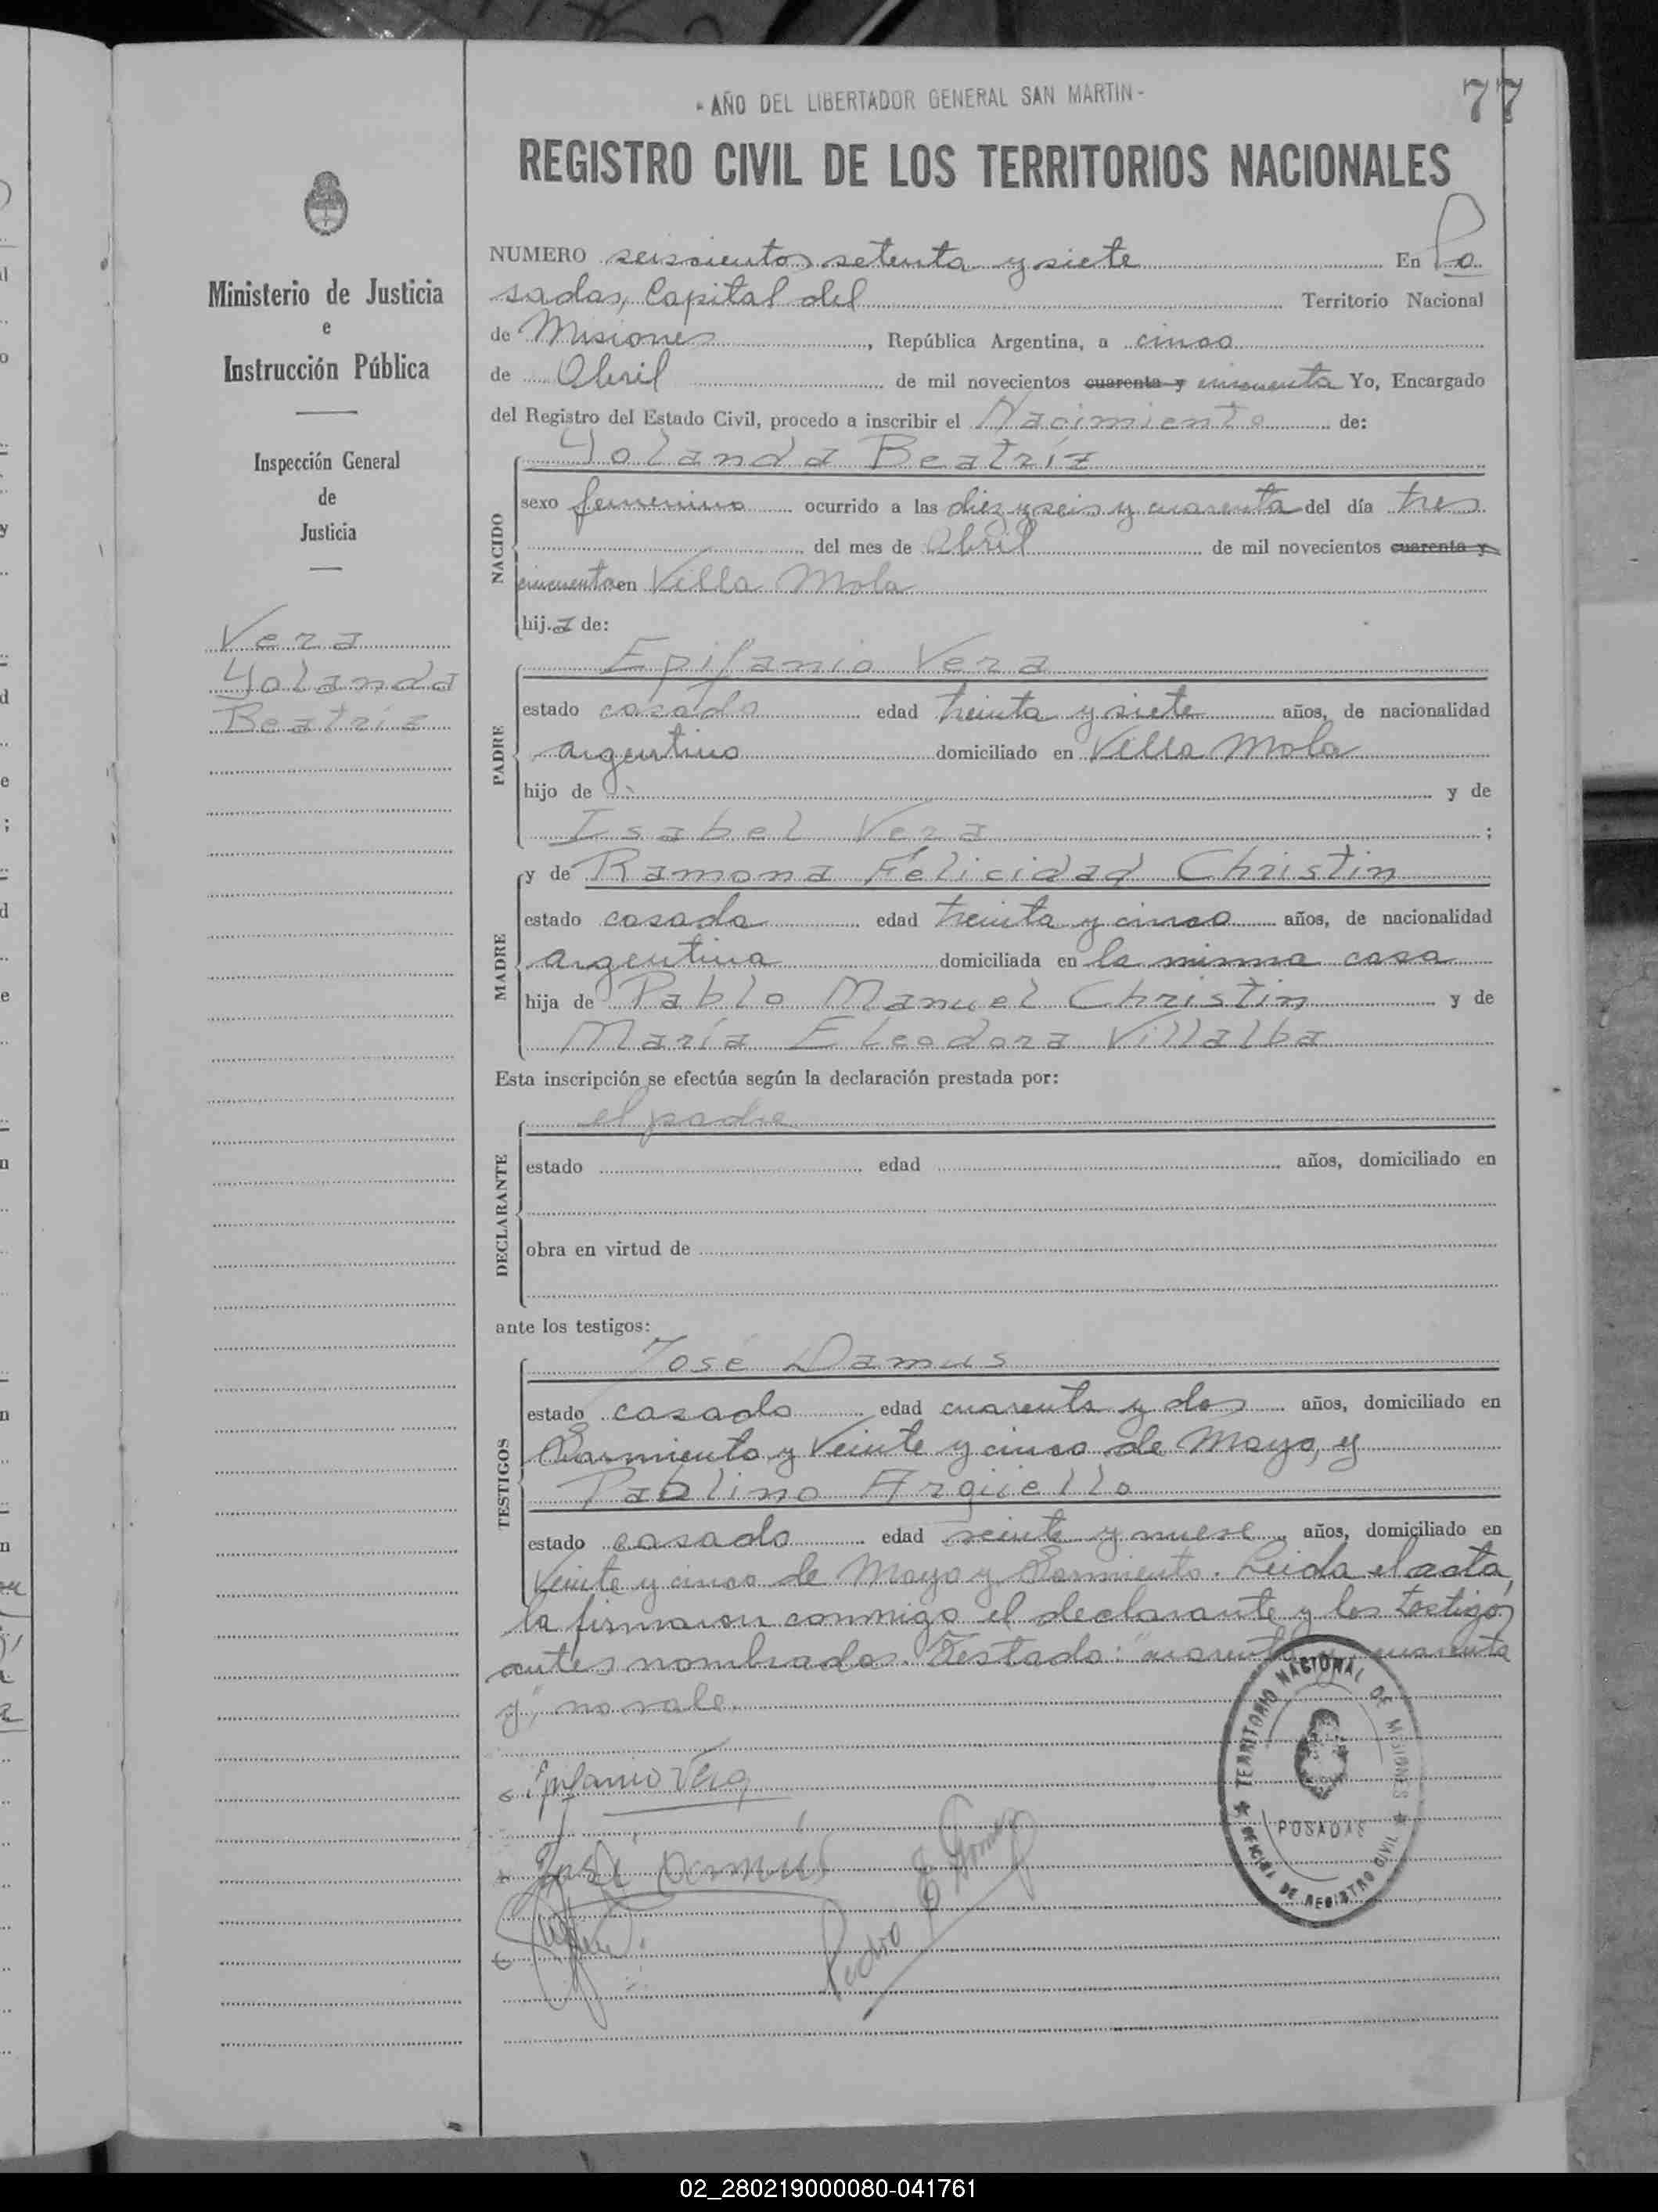 - AÑO DEL LIBERTADOR GENERAL SAN MARTIN -
77
REGISTRO CIVIL DE LOS TERRITORIOS NACIONALES
Ministerio de Justicia
e
Instrucción Pública
Inspección General
de
Justicia
Vera
Yolanda
Beatríz
NUMERO seiscientos setenta y siete En Po
sadas, Capital del Territorio Nacional
de Misiones, República Argentina, a cinco
de Abril de mil novecientos cuarenta y cincuenta Yo, Encargado
del Registro del Estado Civil, procedo a inscribir el Nacimiento de:
NACIDO
Yolanda Beatríz
sexo femenino ocurrido a las diez y seis y cuarenta del día tres
del mes de Abril de mil novecientos cuarenta y
cincuenta en Villa Mola
hij.a de:
PADRE
Epifanio Vera
estado casado edad treinta y siete años, de nacionalidad
argentino domiciliado en Villa Mola
hijo de y de
Isabel Vera ;
MADRE
y de Ramona Felicidad Christin
estado casada edad treinta y cinco años, de nacionalidad
argentina domiciliada en la misma casa
hija de Pablo Manuel Christin y de
María Eleodora Villalba
Esta inscripción se efectúa según la declaración prestada por:
DECLARANTE
el padre
estado edad años, domiciliado en
obra en virtud de
ante los testigos:
TESTIGOS
José Damus
estado casado edad cuarenta y dos años, domiciliado en
Sarmiento y Veinte y cinco de Mayo, y
Pablino Argüello
estado casado edad veinte y nueve años, domiciliado en
Veinte y cinco de Mayo y Sarmiento. Leida el acta,
la firmaron conmigo el declarante y los testigos
antes nombrados. Testado: "cuarenta y cuarenta
y", no vale.
Epifanio Vera
José Damus
Pedro Gomez
TERRITORIO NACIONAL DE MISIONES
POSADAS
OFICINA DE REGISTRO CIVIL
02_280219000080-041761